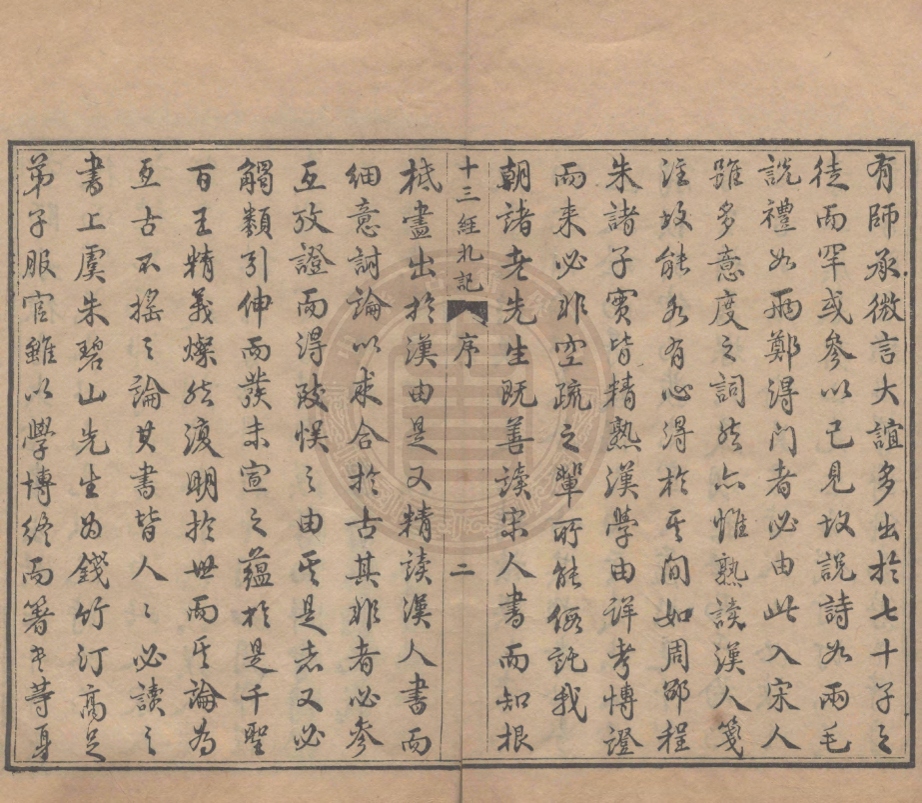 有師承微言大誼多出於七十子之
徒而罕或參以己見故説詩如兩毛
説禮如兩鄭得門者必由此入宋人
雖多意度之詞然亦惟熟讀漢人箋
注故能各有心得於其間如周邵程
朱諸子實皆精熟漢學由詳考愽證
而来必非空疏之輩所能假託我
朝諸老先生既善讀宋人書而知根
十三經札記 序 二
柢盡出於漢由是又精讀漢人書而
細意討論以求合於古其非者必參
互攷證而得致悮之由其是者又必
觸類引伸而發未宣之蘊於是千聖
百王精義燦然復明於世而其論為
亙古不搖之論其書皆人人必讀之
書上虞朱碧山先生為錢竹汀高足
弟子服官雖以學博終而著書等身